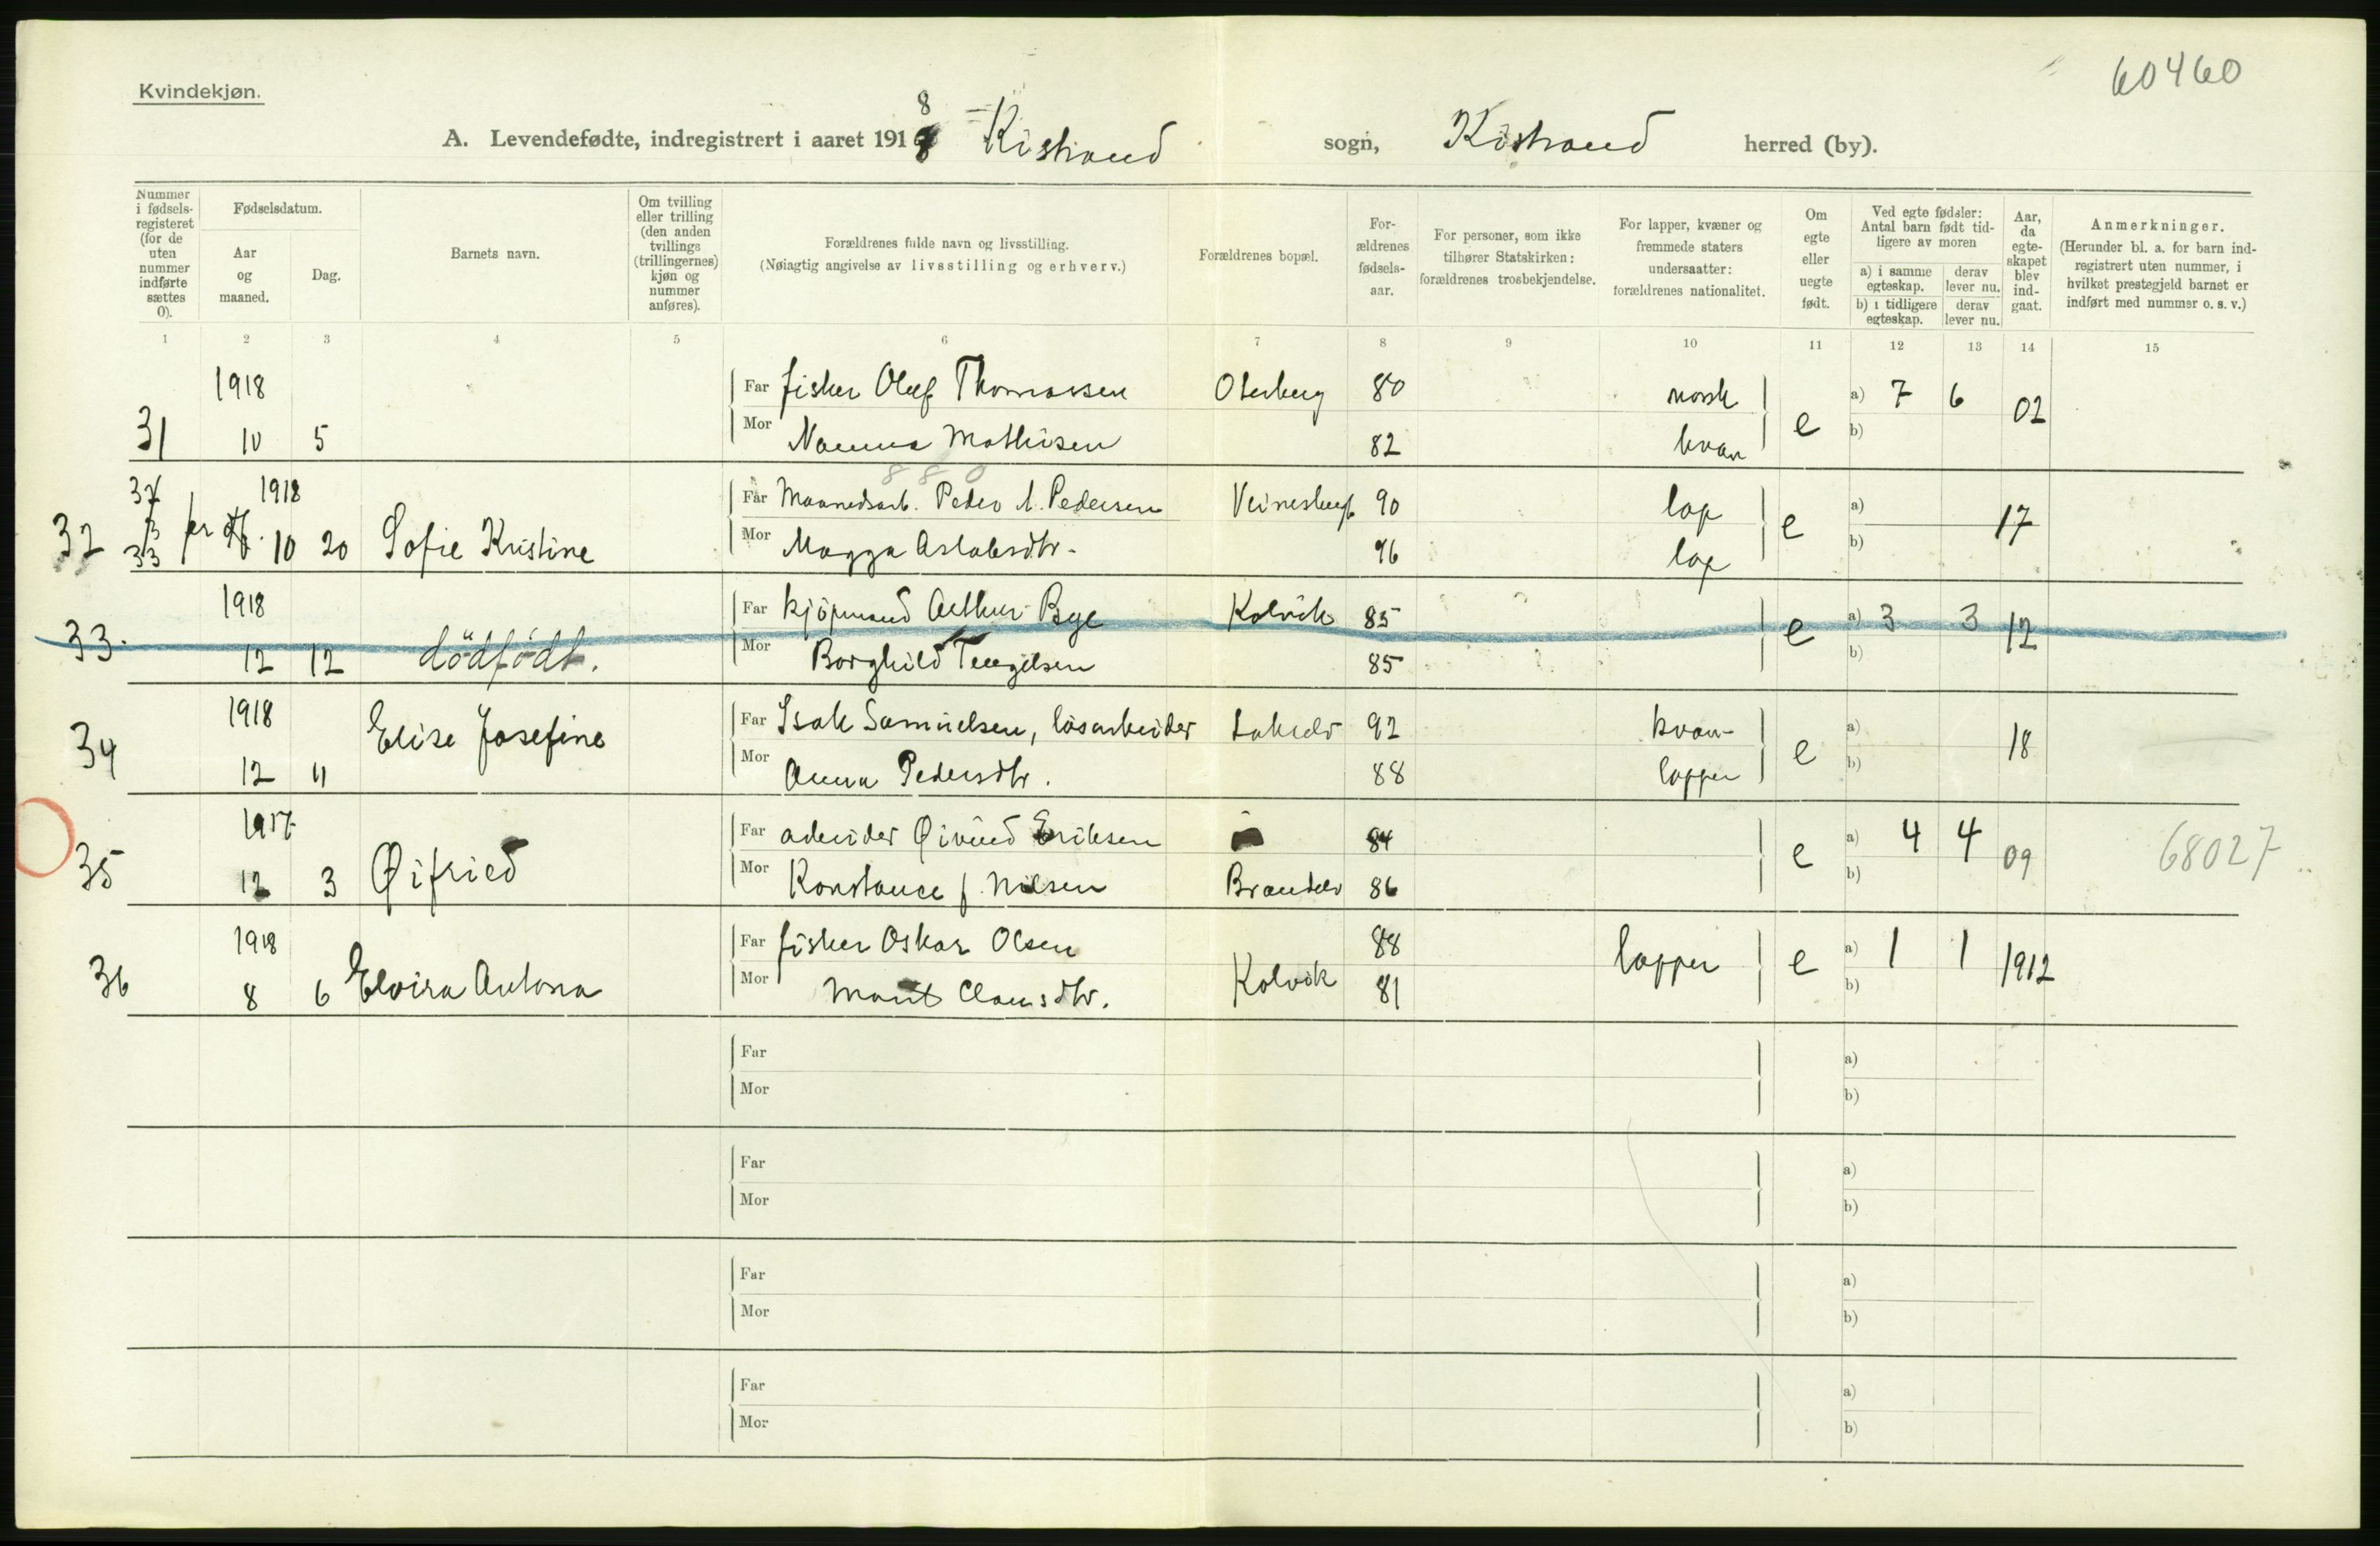 60460
Kvindekjøn.
A. Levendefødte, indregistrert i aaret 1918 Kistrand sogn, Kistrand herred (by).
Nummer i fødsels-registeret (for de uten nummer indførte sættes 0).
Fødselsdatum.
Aar og maaned.
Dag.
Barnets navn.
Om tvilling eller trilling (den anden tvillings (trillingernes) kjøn og nummer anføres).
Forældrenes fulde navn og livsstilling.
(Nøiagtig angivelse av livsstilling og erhverv.)
Forældrenes bopæl.
For-ældrenes fødsels-aar.
For personer, som ikke tilhører Statskirken: forældrenes trosbekjendelse.
For lapper, kvæner og fremmede staters undersaatter: forældrenes nationalitet.
Om egte eller uegte født.
Ved egte fødsler: Antal barn født tid-ligere av moren
a) i samme egteskap.
derav lever nu.
b) i tidligere egteskap.
derav lever nu.
Aar, da egte-skapet blev ind-gaat.
Anmerkninger.
(Herunder bl. a. for barn ind-registrert uten nummer, i hvilket prestegjeld barnet er indført med nummer o. s. v.)
1 2 3 4 5 6 7 8 9 10 11 12 13 14 15
1918 Far fisker Oluf Thomassen 80 norsk a) 7 6 02
31 10 5 Mor Nanna Mathisen 82 kvæn e b)
880
1918 Far Maanedsarb. Peder A. Pedersen 90 lap a) 17
32 33 10 20 Sofie Kristine Mor Magga Aslaksdtr. 96 lap e b)
1918 Far kjöpmand Arthur Bye Kolvik 85 a) 3 3 12
33. 12 12 dödfödt. Mor Borghild Tengelsen 85 e b)
1918 Far Isak Samuelsen, lösarbeider 92 kvæn a) 18
34 12 11 Elise Josefine Mor Anna Pedersdtr. 88 lapper e b)
1917 Far arbeider Øivind Eriksen 84 a) 4 4 09 68027
35 12 3 Øifried Mor Konstance J. Nilsen Brændelv 86 e b)
1918 Far fisker Oskar Olsen 88 lapper e a) 1 1 1912
36 8 6 Elvira Antona Mor Marit Clausdtr. Kolvik 81 b)
Far a)
Mor b)
Far a)
Mor b)
Far a)
Mor b)
Far a)
Mor b)